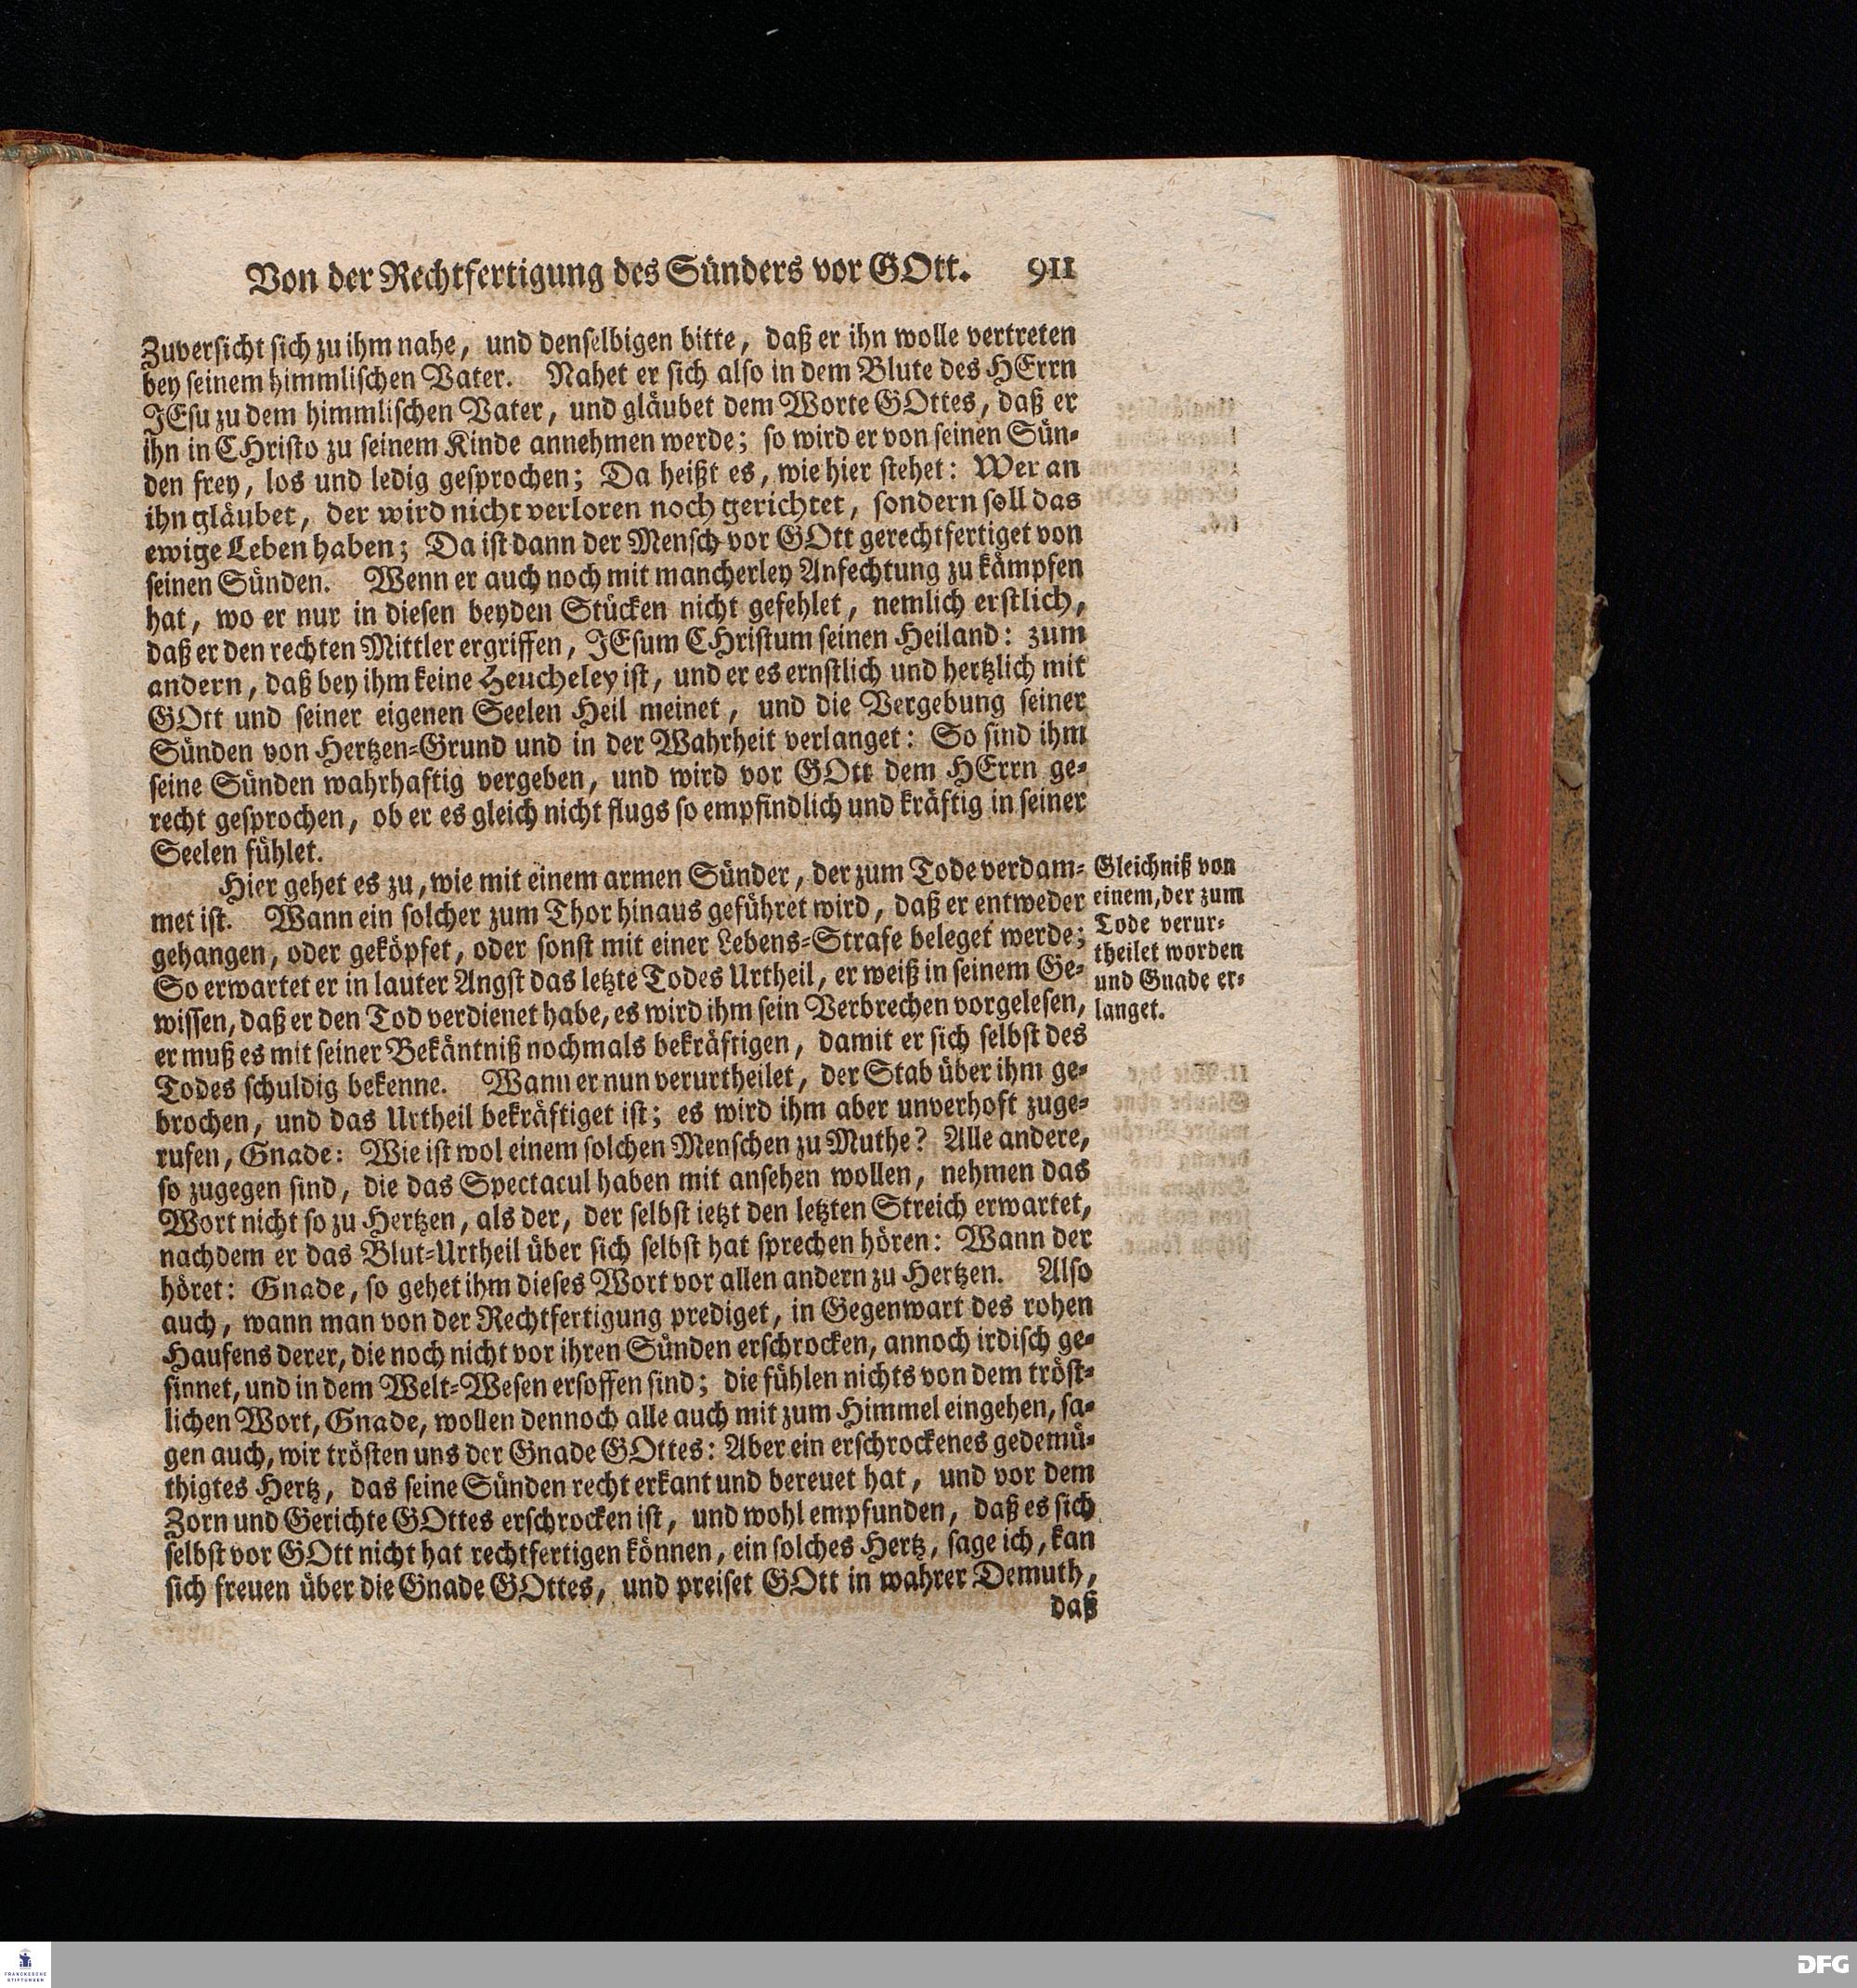 Von der Rechtfertigung des Sünders vor GOtt. 911
Zuversicht sich zu ihm nahe, und denselbigen bitte, daß er ihn wolle vertreten
bey seinem himmlischen Vater. Nahet er sich also in dem Blute des HErrn
JEsu zu dem himmlischen Vater, und gläubet dem Worte GOttes, daß er
ihn in CHristo zu seinem Kinde annehmen werde; so wird er von seinen Sün-
den frey, los und ledig gesprochen; Da heißt es, wie hier stehet: Wer an
ihn gläubet, der wird nicht verloren noch gerichtet, sondern soll das
ewige Leben haben; Da ist dann der Mensch vor GOtt gerechtfertiget von
seinen Sünden. Wenn er auch noch mit mancherley Anfechtung zu kämpfen
hat, wo er nur in diesen beyden Stücken nicht gefehlet, nemlich erstlich,
daß er den rechten Mittler ergriffen, JEsum CHristum seinen Heiland: zum
andern, daß bey ihm keine Heucheley ist, und er es ernstlich und hertzlich mit
GOtt und seiner eigenen Seelen Heil meinet, und die Vergebung seiner
Sünden von Hertzen-Grund und in der Wahrheit verlanget: So sind ihm
seine Sünden wahrhaftig vergeben, und wird vor GOtt dem HErrn ge-
recht gesprochen, ob er es gleich nicht flugs so empfindlich und kräftig in seiner
Seelen fühlet.
Hier gehet es zu, wie mit einem armen Sünder, der zum Tode verdam-
met ist. Wann ein solcher zum Thor hinaus geführet wird, daß er entweder
gehangen, oder geköpfet, oder sonst mit einer Lebens-Strafe beleget werde;
So erwartet er in lauter Angst das letzte Todes Urtheil, er weiß in seinem Ge-
wissen, daß er den Tod verdienet habe, es wird ihm sein Verbrechen vorgelesen,
er muß es mit seiner Bekäntniß nochmals bekräftigen, damit er sich selbst des
Todes schuldig bekenne. Wann er nun verurtheilet, der Stab über ihm ge-
brochen, und das Urtheil bekräftiget ist; es wird ihm aber unverhoft zuge-
rufen, Gnade: Wie ist wol einem solchen Menschen zu Muthe? Alle andere,
so zugegen sind, die das Spectacul haben mit ansehen wollen, nehmen das
Wort nicht so zu Hertzen, als der, der selbst ietzt den letzten Streich erwartet,
nachdem er das Blut-Urtheil über sich selbst hat sprechen hören: Wann der
höret: Gnade, so gehet ihm dieses Wort vor allen andern zu Hertzen. Also
auch, wann man von der Rechtfertigung prediget, in Gegenwart des rohen
Haufens derer, die noch nicht vor ihren Sünden erschrocken, annoch irdisch ge-
sinnet, und in dem Welt-Wesen ersoffen sind; die fühlen nichts von dem tröst-
lichen Wort, Gnade, wollen dennoch alle auch mit zum Himmel eingehen, sa-
gen auch, wir trösten uns der Gnade GOttes: Aber ein erschrockenes gedemü-
thigtes Hertz, das seine Sünden recht erkant und bereuet hat, und vor dem
Zorn und Gerichte GOttes erschrocken ist, und wohl empfunden, daß es sich
selbst vor GOtt nicht hat rechtfertigen können, ein solches Hertz, sage ich, kan
sich freuen über die Gnade GOttes, und preiset GOtt in wahrer Demuth,
daß
Gleichniß von
einem, der zum
Tode verur-
theilet worden
und Gnade er-
langet.
FRANCKESCHE
STIFTUNGEN
DFG